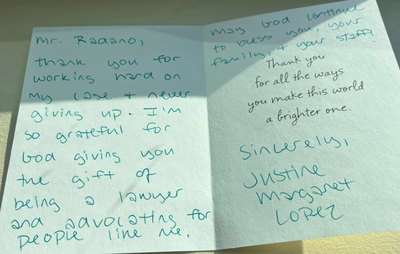 Mr. Radano,
thank you for
working hard on
my case + never
giving up. I'm
so grateful for
God giving you
the gift of
being a lawyer
and advocating for
people like me.
may God continue
to bless you, your
family, + your staff!
Thank you
for all the ways
you make this world
a brighter one.
Sincerely,
Justine
Margaret
Lopez